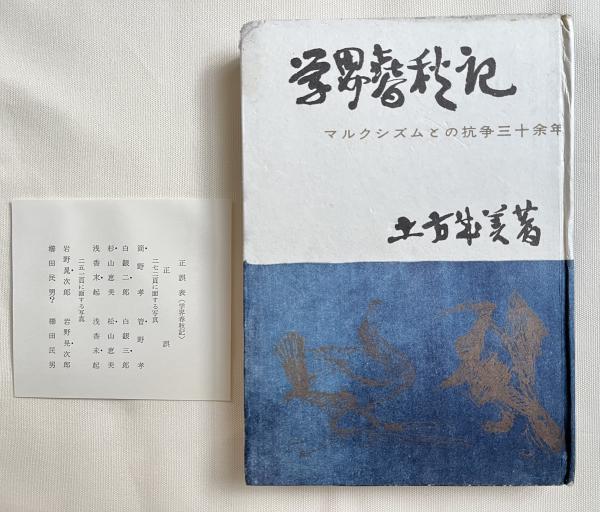 学界春秋記
マルクシズムとの抗争三十余年
土方成美著
正誤表(学界春秋記)
正 誤
二七二頁に面する写真
菅野孝 管野孝
白銀二郎 白銀三郎
杉山恵夫 松山恵夫
浅香末起 浅香未起
二五二頁に面する写真
岩野晃次郎 岩野晃次郎
櫛田民男? 櫛田民男